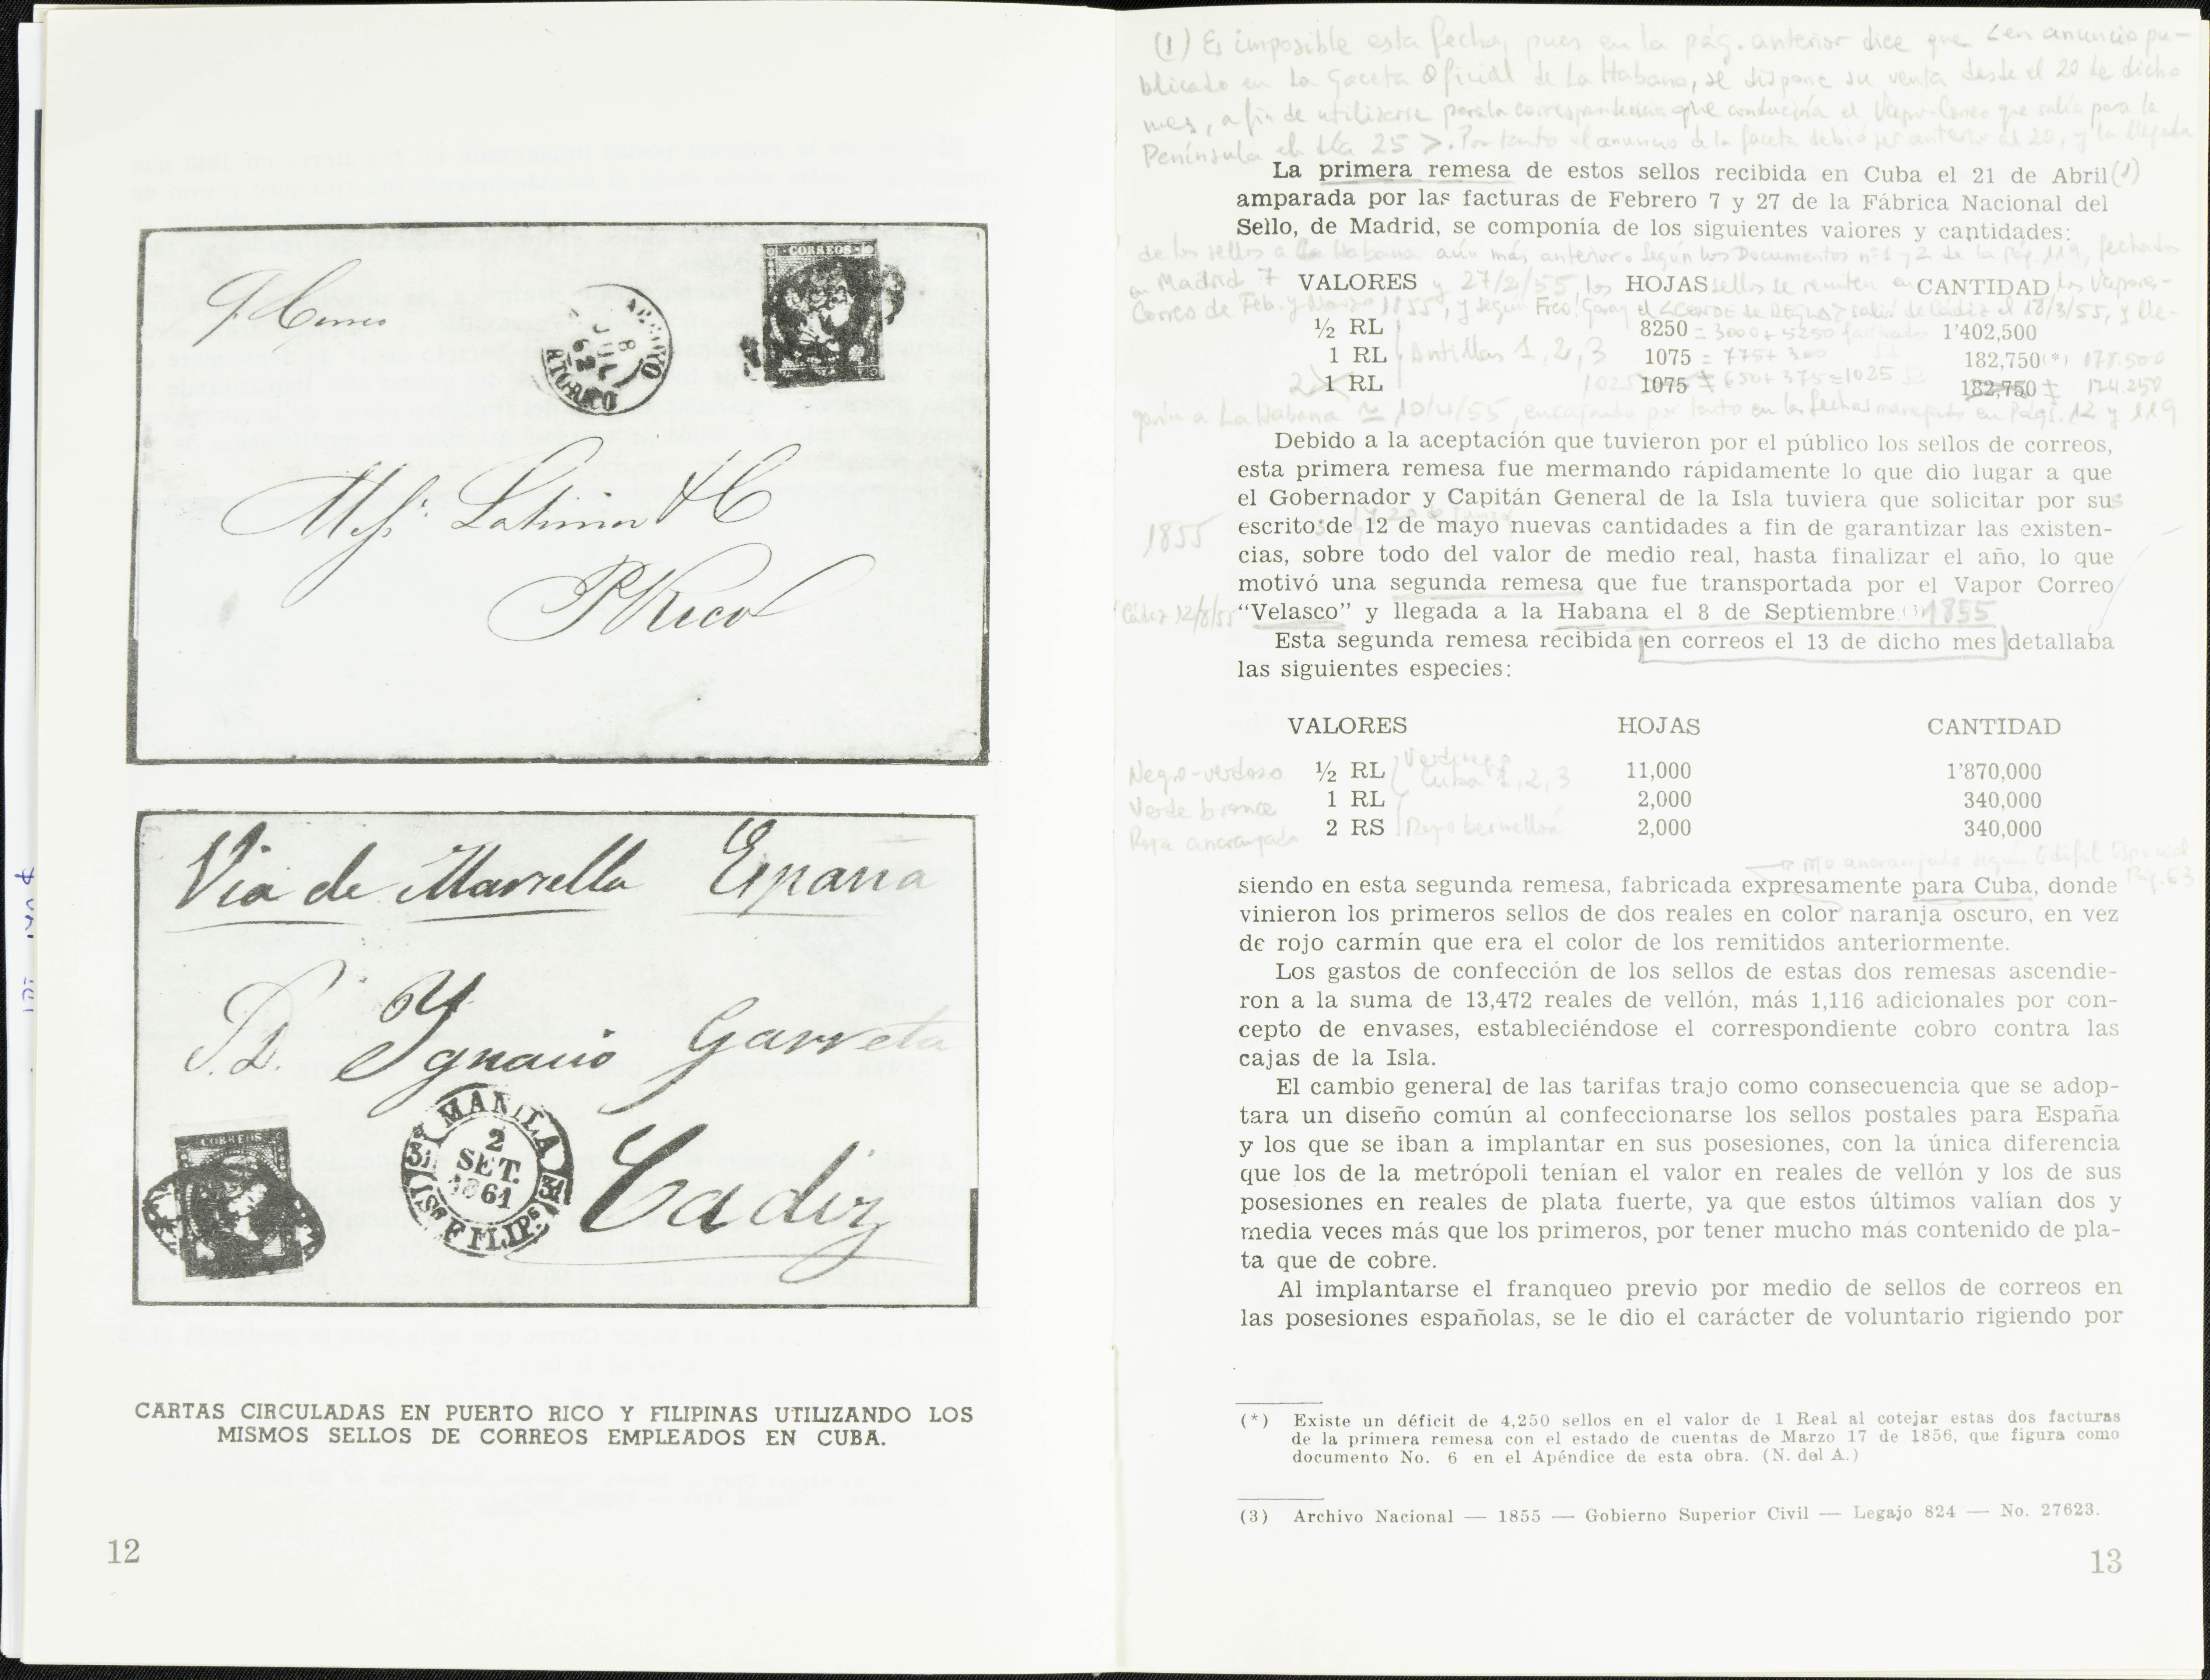 CORREOS
ARROYO
8
JUL
62
Messrs. Latimer & C
P. Rico
CORREOS
Via de Marsella España
S. D. Ygnacio Garreta
MANILA
2
SET.
1861
31 31
ISs FILIPs
CORREOS
Cadiz
CARTAS CIRCULADAS EN PUERTO RICO Y FILIPINAS UTILIZANDO LOS
MISMOS SELLOS DE CORREOS EMPLEADOS EN CUBA.
12
(1) Es imposible esta fecha, pues en la pág. anterior dice que <en anuncio pu-
blicado en La Gaceta Oficial de La Habana, se dispone su venta desde el 20 de dicho
mes, a fin de utilizarse para la correspondencia que conduciría el Vapor-Correo que salía para la
Península el día 25>. Por tanto el anuncio de la Gaceta debió ser anterior al 20, y la llegada
La primera remesa de estos sellos recibida en Cuba el 21 de Abril (1)
amparada por las facturas de Febrero 7 y 27 de la Fábrica Nacional del
Sello, de Madrid, se componía de los siguientes valores y cantidades:
de los sellos a La Habana aún más anterior. Según los Documentos nº 1 y 2 de la pág. 119, fechados
en Madrid 7 y 27/2/55, los sellos se remiten en los Vapores-
VALORES HOJAS CANTIDAD
Correos de Feb. y Marzo 1855, y según Fco. Garay el <CONDE de REGLA> salió de Cádiz el 18/3/55, y lle-
½ RL 8250 = 3000 + 5250 1'402,500
1 RL Antillas 1, 2, 3 1075 = 775 + 300 182,750(*) 178.500
2 1 RL 1025 1075 ≠ 650 + 375 = 1025 182,750 ≠ 174.250
garía a La Habana ≃ 10/4/55, encajando por tanto en las fechas manejadas en Págs. 12 y 119
Debido a la aceptación que tuvieron por el público los sellos de correos,
esta primera remesa fue mermando rápidamente lo que dio lugar a que
el Gobernador y Capitán General de la Isla tuviera que solicitar por sus
escrito de 12 de mayo nuevas cantidades a fin de garantizar las existen-
1855
cias, sobre todo del valor de medio real, hasta finalizar el año, lo que
motivó una segunda remesa que fue transportada por el Vapor Correo
Cádiz 12/8/55 “Velasco” y llegada a la Habana el 8 de Septiembre.(3) 1855
Esta segunda remesa recibida en correos el 13 de dicho mes detallaba
las siguientes especies:
VALORES HOJAS CANTIDAD
Negro-verdoso ½ RL Cuba 1, 2, 3 11,000 1'870,000
Verde bronce 1 RL 2,000 340,000
Rojo anaranjado 2 RS Rojo bermellón 2,000 340,000
rojo anaranjado según Edifil Especial
Pág. 63
siendo en esta segunda remesa, fabricada expresamente para Cuba, donde
vinieron los primeros sellos de dos reales en color naranja oscuro, en vez
de rojo carmín que era el color de los remitidos anteriormente.
Los gastos de confección de los sellos de estas dos remesas ascendie-
ron a la suma de 13,472 reales de vellón, más 1,116 adicionales por con-
cepto de envases, estableciéndose el correspondiente cobro contra las
cajas de la Isla.
El cambio general de las tarifas trajo como consecuencia que se adop-
tara un diseño común al confeccionarse los sellos postales para España
y los que se iban a implantar en sus posesiones, con la única diferencia
que los de la metrópoli tenían el valor en reales de vellón y los de sus
posesiones en reales de plata fuerte, ya que estos últimos valían dos y
media veces más que los primeros, por tener mucho más contenido de pla-
ta que de cobre.
Al implantarse el franqueo previo por medio de sellos de correos en
las posesiones españolas, se le dio el carácter de voluntario rigiendo por
(*) Existe un déficit de 4,250 sellos en el valor de 1 Real al cotejar estas dos facturas
de la primera remesa con el estado de cuentas de Marzo 17 de 1856, que figura como
documento No. 6 en el Apéndice de esta obra. (N. del A.)
(3) Archivo Nacional — 1855 — Gobierno Superior Civil — Legajo 824 — No. 27623.
13